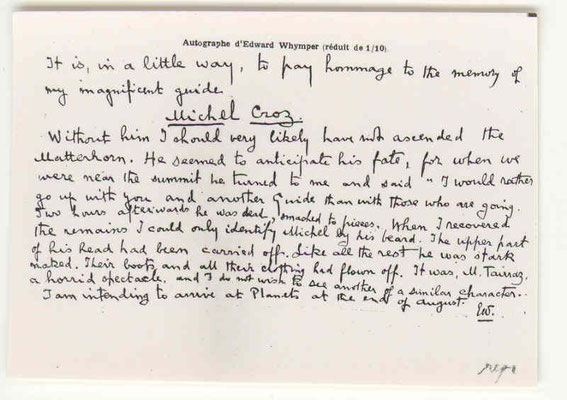 Autographe d'Edward Whymper (réduit de 1/10).
It is, in a little way, to pay hommage to the memory of
my magnificent guide
Michel Croz.
Without him I should very likely have not ascended the
Matterhorn. He seemed to anticipate his fate, for when we
were near the summit he turned to me and said "I would rather
go up with you and another Guide than with those who are going.
Two hours afterwards he was dead, smacked to pieces. When I recovered
the remains I could only identify Michel by his beard. The upper part
of his head had been carried off. Like all the rest he was stark
naked. Their boots and all their clothing had flown off. It was, M. Tairraz,
a horrid spectacle, and I do not wish to see another of a similar character.
I am intending to arrive at Planets at the end of August.
EW.